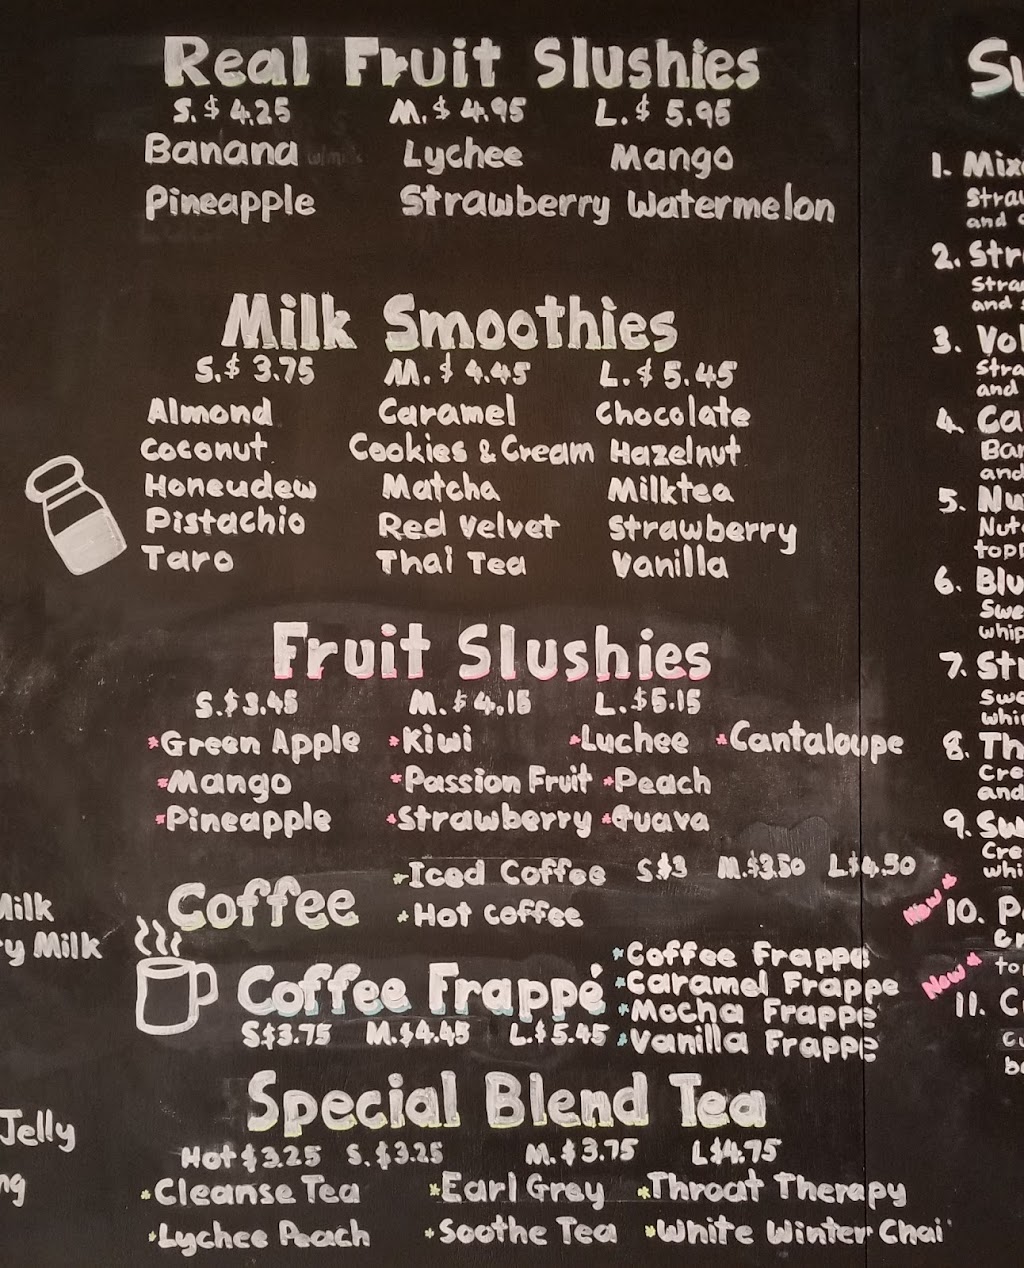 Real Fruit Slushies
S. $ 4.25 M. $ 4.95 L. $ 5.95
Banana Lychee Mango
Pineapple Strawberry Watermelon
Milk Smoothies
S. $ 3.75 M. $ 4.45 L. $ 5.45
Almond Caramel Chocolate
Coconut Cookies & Cream Hazelnut
Honeudew Matcha Milktea
Pistachio Red Velvet Strawberry
Taro Thai Tea Vanilla
Fruit Slushies
S. $3.45 M. $ 4.15 L. $5.15
*Green Apple *Kiwi *Luchee *Cantaloupe
*Mango *Passion Fruit *Peach
*Pineapple *Strawberry *Guava
Coffee
*Iced Coffee S$3 M.$3.50 L$4.50
*Hot Coffee
Coffee Frappé
S$3.75 M.$4.45 L.$5.45
*Coffee Frappe
*Caramel Frappe
*Mocha Frappe
*Vanilla Frappe
Special Blend Tea
Hot $3.25 S. $3.25 M. $3.75 L$4.75
*Cleanse Tea *Earl Grey *Throat Therapy
*Lychee Peach *Soothe Tea *White Winter Chai
Milk
ry Milk
Jelly
ng
Su
1. Mix
Straw
and
2. Str
Straw
and
3. Vol
Stra
and
4. Ca
Ban
and
5. Nu
Nut
topp
6. Blu
Swe
whip
7. Str
Swe
whi
8. Th
Cre
and
9. Sw
Cre
whi
New
10. P
Cr
to
New
11. C